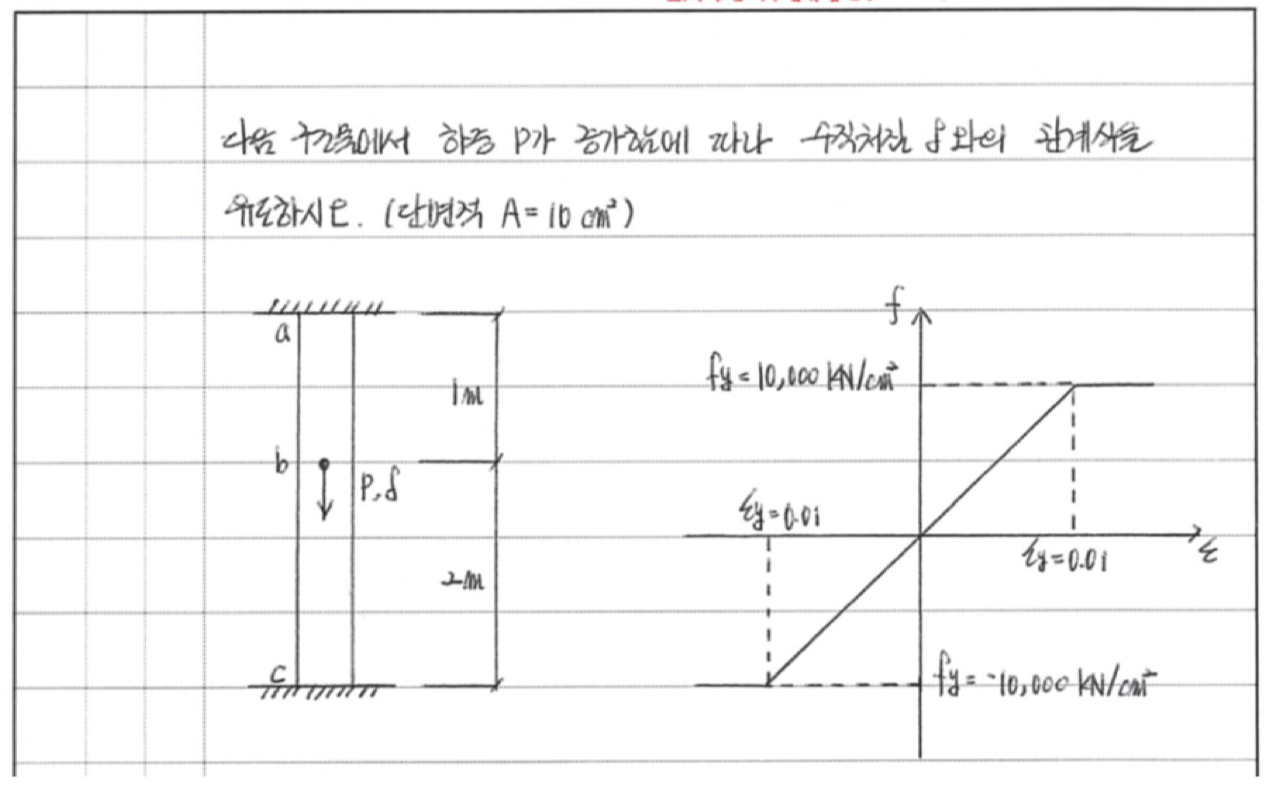 다음 구조물에서 하중 P가 증가함에 따라 수직처짐 δ와의 관계식을
유도하시오. (단면적 A = 10 cm²)
a
1m
b
P, δ
2m
c
f
fy = 10,000 kN/cm²
εy = 0.01
εy = 0.01
ε
fy = -10,000 kN/cm²